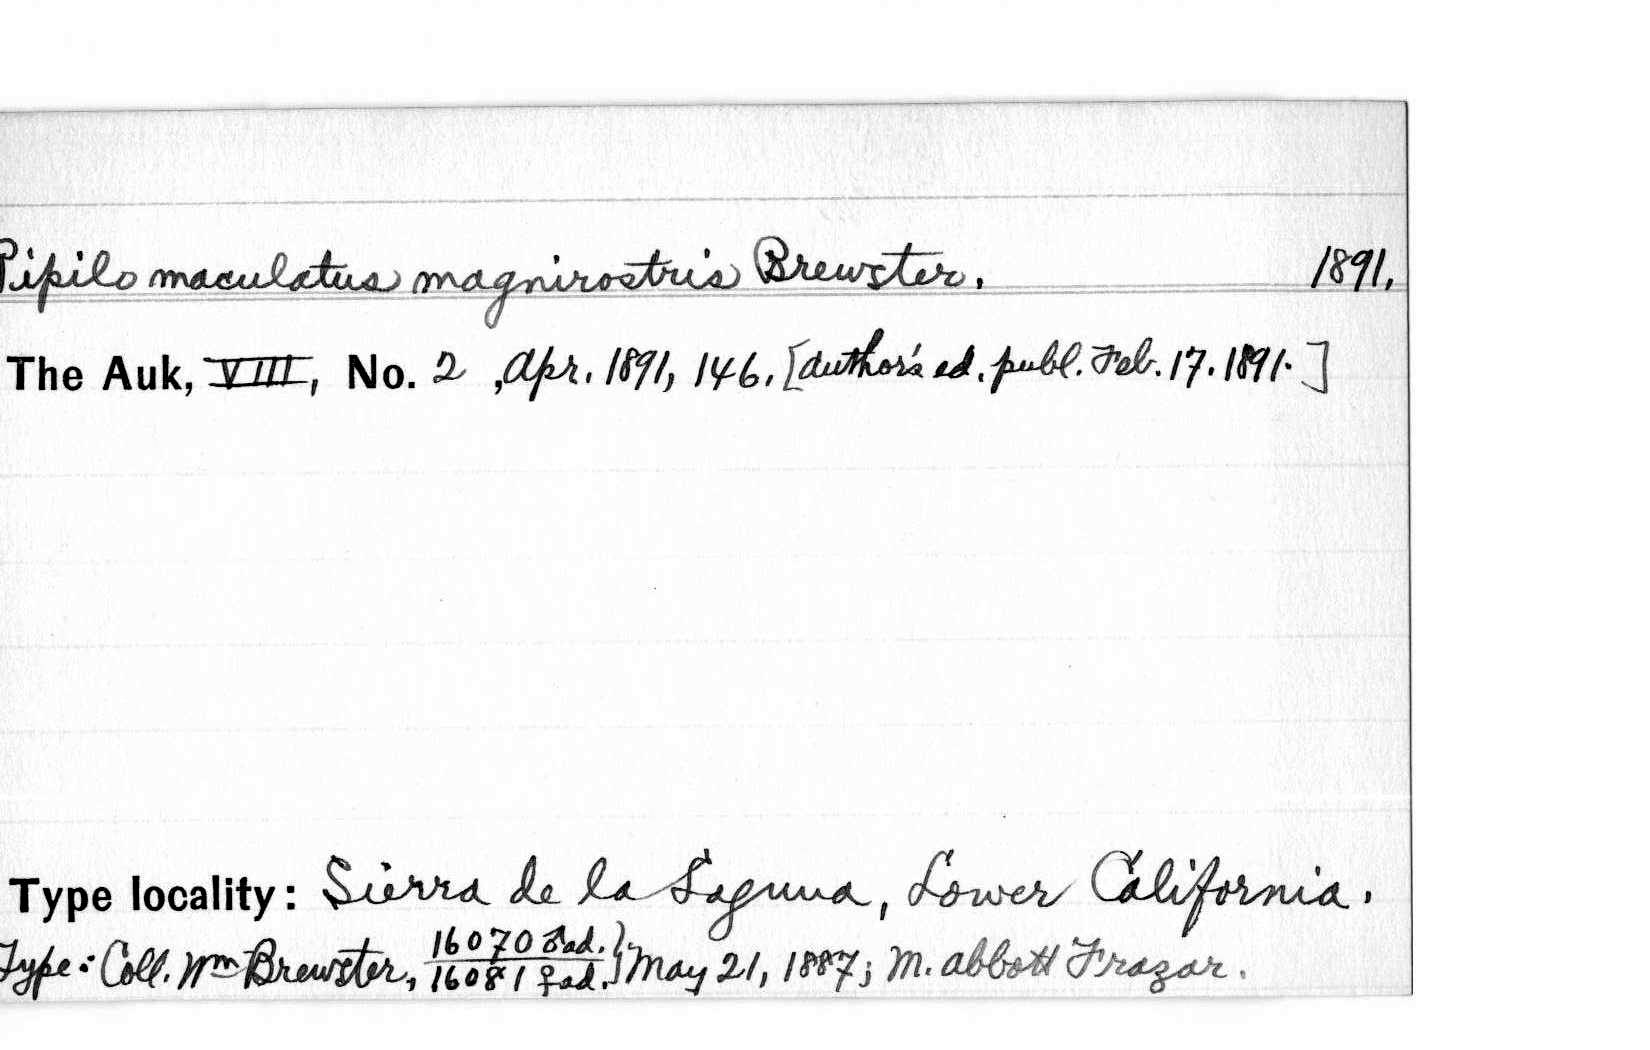 Pipilo maculatus magnirostris Brewster. 1891.
The Auk, VIII, No. 2, Apr. 1891, 146. [Author's ed. publ. Feb. 17. 1891.]
Type locality: Sierra de la Laguna, Lower California.
Type: Coll. Wm Brewster, 16070 ♂ ad. } May 21, 1887; M. Abbott Frazar.
16081 ♀ ad.